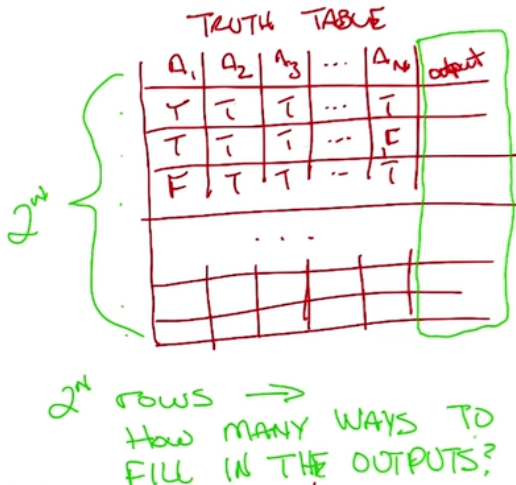 TRUTH TABLE
A₁ A₂ A₃ ... Aₙ output
T T T ... T
T T T ... F
F T T ... T
2ᴺ
...
2ᴺ rows →
How MANY WAYS TO
FILL IN THE OUTPUTS?